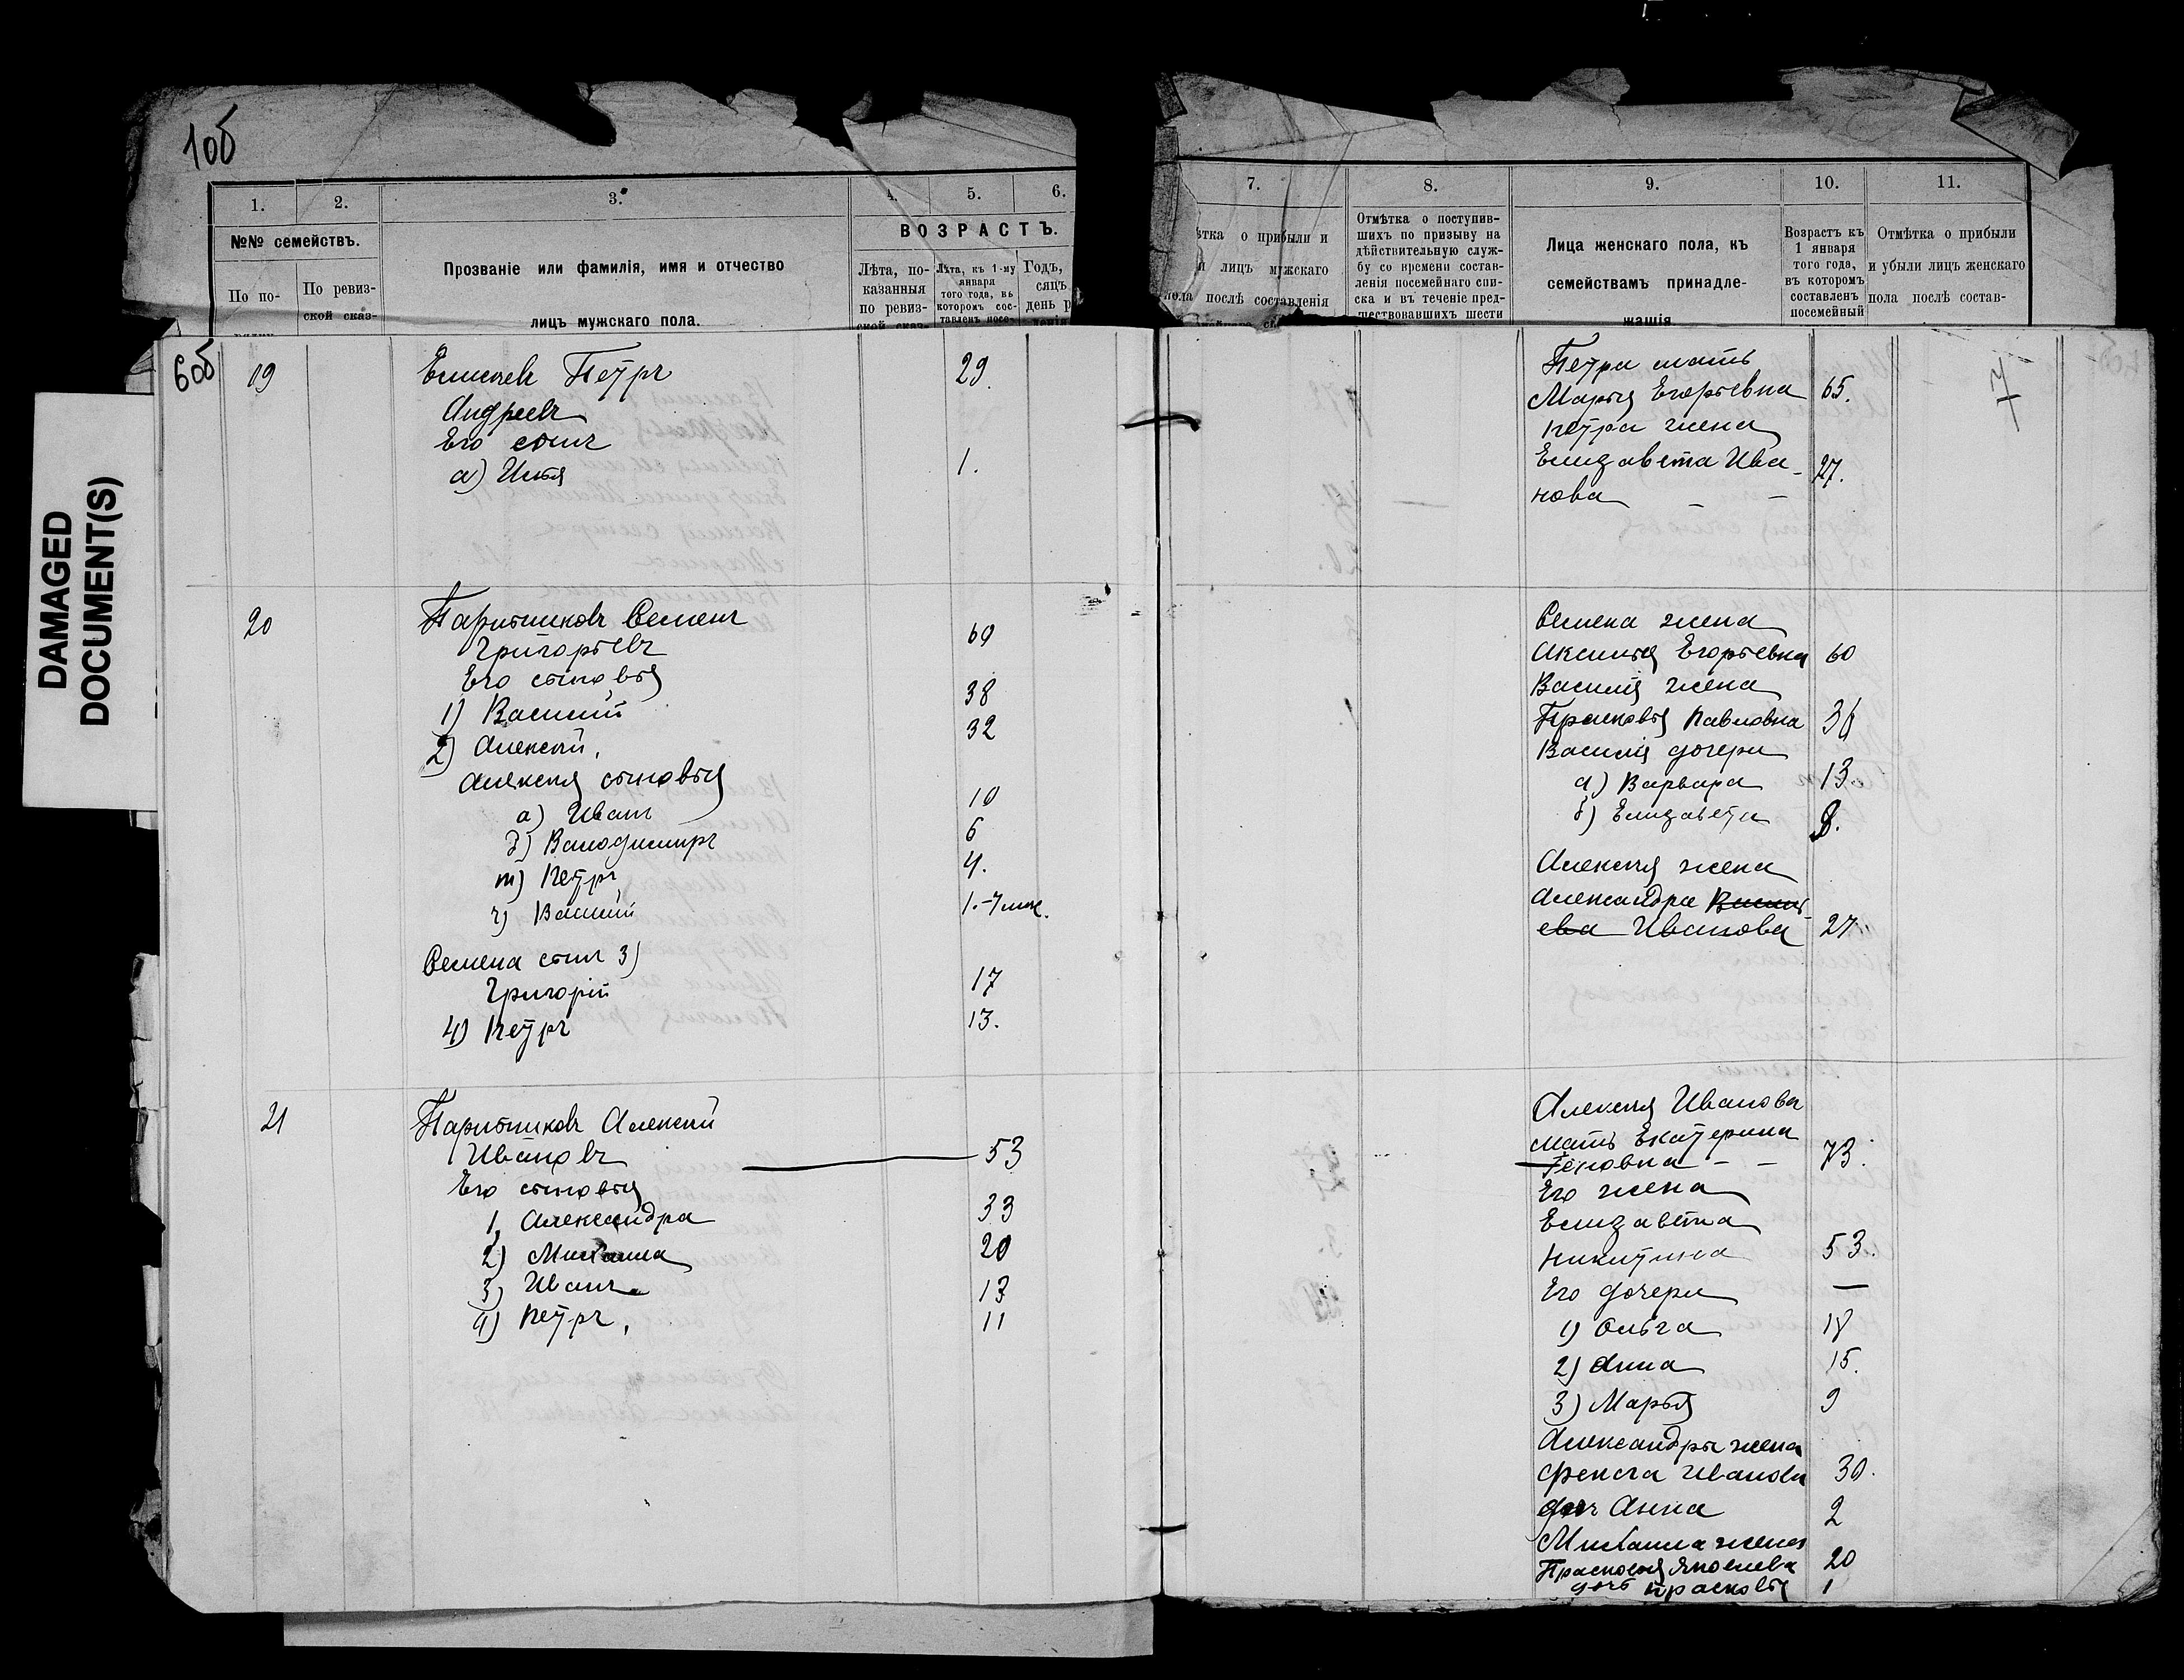 10б
1.
2.
3.
4.
5.
6.
№№ семействъ.
По по-
По ревиз-
ской сказ-
Прозваніе или фамилія, имя и отчество
лицъ мужскаго пола.
ВОЗРАСТЪ.
Лѣта, по-
казанныя
по ревиз-
ской сказ-
Лѣта, къ 1-му
января
того года, въ
которомъ сос-
тавленъ посе-
Годъ,
сяцъ
день р
7.
8.
9.
10.
11.
ѣтка о прибыли и
и лицъ мужскаго
пола послѣ составленія
Отмѣтка о поступив-
шихъ по призыву на
дѣйствительную служ-
бу со времени состав-
ленія посемейнаго спи-
ска и въ теченіе пред-
шествовавшихъ шести
Лица женскаго пола, къ
семействамъ принадле-
жащія
Возрастъ къ
1 января
того года,
въ которомъ
составленъ
посемейный
Отмѣтка о прибыли
и убыли лицъ женскаго
пола послѣ состав-
DAMAGED
DOCUMENT(S)
6об
19
Петръ 29.
Андреевъ
Его сынъ
а) Илья 1.
20
Паритниковъ Семенъ
Григорьевъ 60
Его сыновья
1) Василий 38
2) Алексѣй, 32
Алексѣя сыновья
а) Иванъ 10
б) Владимиръ 6
в) Петръ 4.
г) Василий 1.-7 мѣс.
Семена сынъ 3)
Григорій 17
4) Петръ 13.
21
Паритниковъ Алексѣй
Ивановъ 53
Его сыновья
1, Александра 33
2) Михаила 20
3) Иванъ 13
4) Петръ, 11
7
Петра мать
Марья Егорьевна 65.
Петра жена
Елизавета Ива-
нова 27.
Семена жена
Аксинья Егорьевна 60
Василія жена
Прасковья Павловна 36
Василія дочери
а) Варвара 13.
б) Елизавета 8.
Алексѣя жена
Александра Василь-
ева Иванова 27.
Алексѣя Иванова
мать Екатерина
73.
Его жена
Елизавета
Никитина 53.
Его дочери —
1) Ольга 18
2) Анна 15.
3) Марья 9
Александры жена
Фекла Иванова 30.
дочь Анна 2
Михаила жена
Прасковья Яковлева 20
дочь Прасковья 1